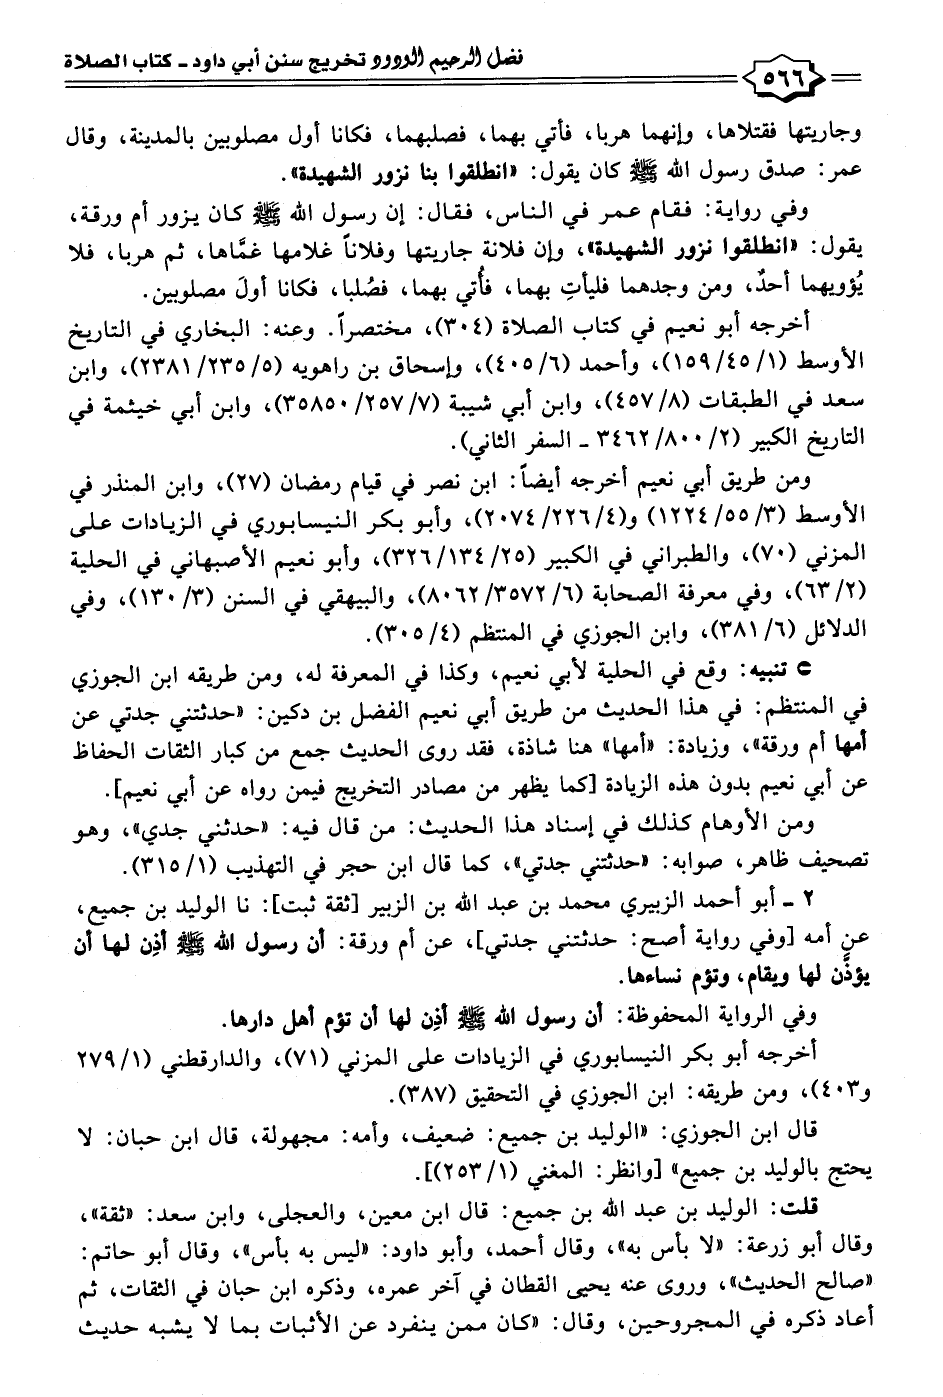 فضل الرحيم الودود تخريج سنن أبي داود - كتاب الصلاة
٥٦٦
وجاريتها فقتلاها، وإنهما هربا، فأتي بهما، فصلبهما، فكانا أول مصلوبين بالمدينة، وقال
عمر: صدق رسول الله ﷺ كان يقول: «انطلقوا بنا نزور الشهيدة».
وفي رواية: فقام عمر في الناس، فقال: إن رسول الله ﷺ كان يزور أم ورقة،
يقول: «انطلقوا نزور الشهيدة»، وإن فلانة جاريتها وفلاناً غلامها غمَّاها، ثم هربا، فلا
يُؤويهما أحدٌ، ومن وجدهما فليأتِ بهما، فأُتي بهما، فصُلبا، فكانا أولَ مصلوبين.
أخرجه أبو نعيم في كتاب الصلاة (٣٠٤)، مختصراً. وعنه: البخاري في التاريخ
الأوسط (١/ ٤٥/ ١٥٩)، وأحمد (٦/ ٤٠٥)، وإسحاق بن راهويه (٥/ ٢٣٥/ ٢٣٨١)، وابن
سعد في الطبقات (٨/ ٤٥٧)، وابن أبي شيبة (٧/ ٢٥٧/ ٣٥٨٥٠)، وابن أبي خيثمة في
التاريخ الكبير (٢/ ٨٠٠/ ٣٤٦٢ - السفر الثاني).
ومن طريق أبي نعيم أخرجه أيضاً: ابن نصر في قيام رمضان (٢٧)، وابن المنذر في
الأوسط (٣/ ٥٥/ ١٢٢٤) و(٤/ ٢٢٦/ ٢٠٧٤)، وأبو بكر النيسابوري في الزيادات على
المزني (٧٠)، والطبراني في الكبير (٢٥/ ١٣٤/ ٣٢٦)، وأبو نعيم الأصبهاني في الحلية
(٢/ ٦٣)، وفي معرفة الصحابة (٦/ ٣٥٧٢/ ٨٠٦٢)، والبيهقي في السنن (٣/ ١٣٠)، وفي
الدلائل (٦/ ٣٨١)، وابن الجوزي في المنتظم (٤/ ٣٠٥).
تنبيه: وقع في الحلية لأبي نعيم، وكذا في المعرفة له، ومن طريقه ابن الجوزي
في المنتظم: في هذا الحديث من طريق أبي نعيم الفضل بن دكين: «حدثتني جدتي عن
أمها أم ورقة»، وزيادة: «أمها» هنا شاذة، فقد روى الحديث جمع من كبار الثقات الحفاظ
عن أبي نعيم بدون هذه الزيادة [كما يظهر من مصادر التخريج فيمن رواه عن أبي نعيم].
ومن الأوهام كذلك في إسناد هذا الحديث: من قال فيه: «حدثني جدي»، وهو
تصحيف ظاهر، صوابه: «حدثتني جدتي»، كما قال ابن حجر في التهذيب (١/ ٣١٥).
٢ - أبو أحمد الزبيري محمد بن عبد الله بن الزبير [ثقة ثبت]: نا الوليد بن جميع،
عن أمه [وفي رواية أصح: حدثتني جدتي]، عن أم ورقة: أن رسول الله ﷺ أذِن لها أن
يؤذَّن لها ويقام، وتؤم نساءها.
وفي الرواية المحفوظة: أن رسول الله ﷺ أذِن لها أن تؤم أهل دارها.
أخرجه أبو بكر النيسابوري في الزيادات على المزني (٧١)، والدارقطني (١/ ٢٧٩
و٤٠٣)، ومن طريقه: ابن الجوزي في التحقيق (٣٨٧).
قال ابن الجوزي: «الوليد بن جميع: ضعيف، وأمه: مجهولة، قال ابن حبان: لا
يحتج بالوليد بن جميع» [وانظر: المغني (١/ ٢٥٣)].
قلت: الوليد بن عبد الله بن جميع: قال ابن معين، والعجلي، وابن سعد: «ثقة»،
وقال أبو زرعة: «لا بأس به»، وقال أحمد، وأبو داود: «ليس به بأس»، وقال أبو حاتم:
«صالح الحديث»، وروى عنه يحيى القطان في آخر عمره، وذكره ابن حبان في الثقات، ثم
أعاد ذكره في المجروحين، وقال: «كان ممن ينفرد عن الأثبات بما لا يشبه حديث